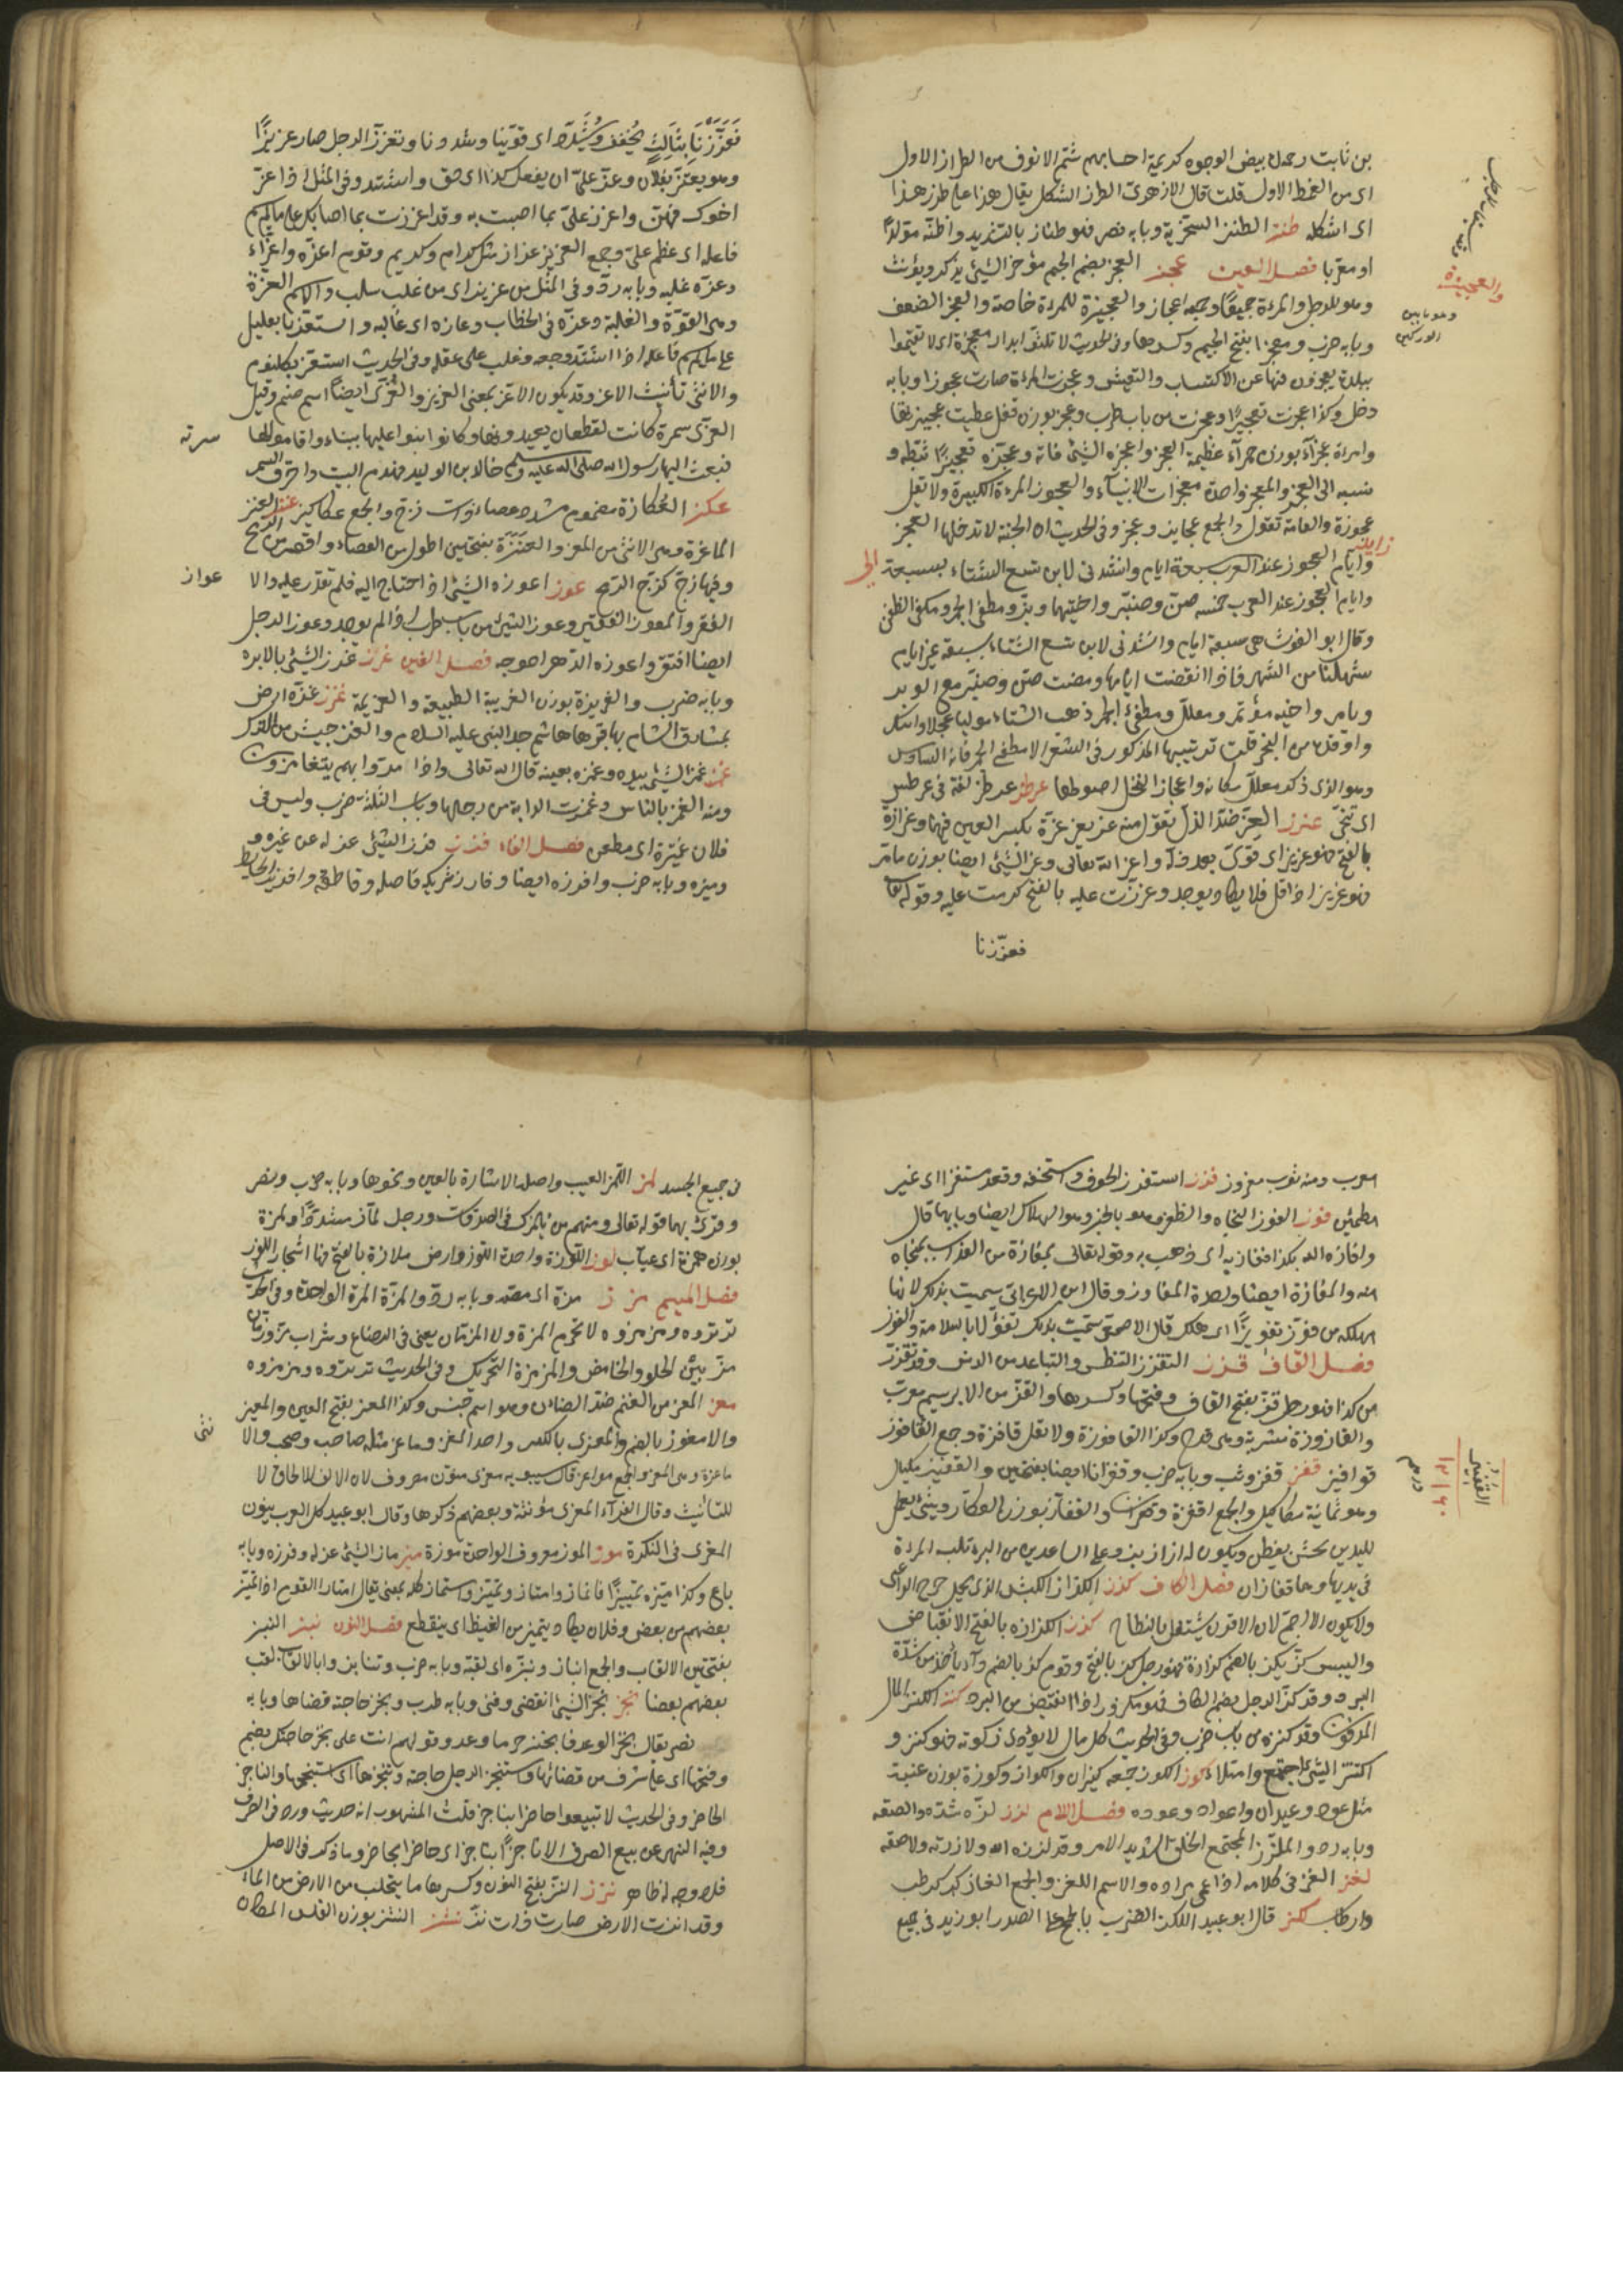 بن ثابت رحمه بيض الوجوه كريمة احسابهم شم الانوف من الطراز الاول
اى من النمط الاول قلت قال الازهرى الطرز الشكل يقال هذا على طرز هذا
اى اشكله طنز الطنز السخرية وبابه نصر فهو طناز بالتشديد واظنه مولدا
او معربا فصل العين عجز العجز بضم الجيم مؤخر الشئ يذكر ويؤنث
وهو للرجل والمرءة جميعا وجمعه اعجاز والعجيزة للمرءة خاصة والعجز الضعف
والعجيزة
وهو ما بين
الوركين
وبابه ضرب ومعجزا بفتح الجيم وكسرها وفى الحديث لا تلثوا بدار معجزة اى لا تقيموا
ببلدة تعجزون فيها عن الاكتساب والتعيش وعجزت المرءة صارت عجوزا وبابه
دخل وكذا عجزت تعجيزا وعجزت من باب طرب وعجز بوزن قفل عظمت عجيزتها
وامراة عجزآء بوزن حمرآء عظيمة العجز واعجزه الشئ فاته وعجزه تعجيزا ثبطه و
نسبه الى العجز والمعجزة واحدة معجزات الانبيآء والعجوز المرءة الكبيرة ولا تقل
عجوزة والعامة تقوله والجمع عجايز وعجز وفى الحديث ان الجنة لا تدخلها العجز
وايام العجوز عند العرب سبعة ايام وانشدنى لابن شبع الشتاء بسبعة الى
وايام العجوز عند العرب خمسة صن وصنبر واخيهما وبر ومطفئ الجمر ومكفئ الظعن
وقال ابو الغوث هى سبعة ايام وانشدنى لابن شبع الشتاء بسبعة غبر ايام
شهلتنا من الشهر فاذا انقضت ايامها ومضت صن وصنبر مع الوبر
وبامر واخيه مؤتمر ومعلل ومطفئ الجمر ذهب الشتاء موليا عجلا واتتك
واقدة من النجر قلت ترتيبها المذكور فى الشعر الا مطفئ الجمر فانه السادس
وهو الذى ذكر معلل مكانه واعجاز النخل اصولها عرطز عرطز لغة فى عرطس
اى تنحى عزز العز ضد الذل تقول منه عز يعز عزة بكسر العين فيهما وعزازة
بالفتح فهو عزيز اى قوى بعد ذلة واعزه الله تعالى وعز الشئ ايضا بوزن ما مر
فهو عزيز اذا قل فلا يكاد يوجد وعززت عليه بالفتح كرمت عليه وقوله تعالى
فعززنا
فَعَزَّزْنَا بِثَالِثٍ يخفف ويشدد اى قوينا وشددنا وتعزز الرجل صار عزيزا
وهو يعتز بفلان وعز على ان يفعل كذا اى حق واشتد وفى المثل اذا عز
اخوك فهن واعزز على بما اصبت به وقد اعززت بما اصابك على ما لم يسم
فاعله اى عظم على وجمع العزيز عزاز مثل كرام وكريم وقوم اعزة واعزاء
وعزه غلبه وبابه رد وفى المثل من عز بز اى من غلب سلب والاسم العزة
وهى القوة والغلبة وعزه فى الخطاب وعازه اى غالبه واستعز بالعليل
على ما لم يسم فاعله اذا اشتد وجعه وغلب على عقله وفى الحديث استعز بكلثوم
والانثى تأنيث الاعز وقد يكون الاعز بمعنى العزيز والعزى ايضا اسم صنم وقيل
العزى سمرة كانت لغطفان يعبدونها وكانوا بنوا عليها بيتاء واقاموا لها سدنة
فبعث اليها رسول الله صلى الله عليه وسلم خالد بن الوليد فهدم البيت واحرق السمر
عكز العكازة مضموم مشدد عصا ذات زج والجمع عكاكيز عنز العنز
الماعزة وهى الانثى من المعز والعنزة بفتحتين اطول من العصاء واقصر من الرمح
وفيها زج كزج الرمح عوز اعوزه الشئ اذا احتاج اليه فلم يقدر عليه والا عواز
الفقر والمعوز الفقير وعوز الشئ من باب طرب اذا لم يوجد وعوز الرجل
ايضا افتقر واعوزه الدهر احوجه فصل الغين غرز غرز الشئ بالابرة
وبابه ضرب والغريزة بوزن الغريبة الطبيعة والعزيمة غزز غزة ارض
بمشارق الشام بها قبر هاشم جد النبى عليه السلام والغز جنس من الترك
غمز غمز الشئ بيده وغمزه بعينه قال الله تعالى واذا مروا بهم يتغامزون
ومنه الغمز بالناس وغمزت الدابة من رجلها وباب الثلثة ضرب وليس فى
فلان غميزة اى مطعن فصل الفاء فرز فرز الشئ عزله عن غيره و
وميزه وبابه ضرب وافرزه ايضا وفارز شريكه فاصله وقاطعه وافريز الحايط
معرب ومنه ثوب مفروز فزز استفزه الخوف استخفه وقعد مستفزا اى غير
مطمئن فوز الفوز النجاة والظفر وهو بالخير وهو الهلاك ايضا وبابهما قال
وافازه الله بكذا ففاز به اى ذهب به وقوله تعالى بمفازة من العذاب بمنجاة
منه والمفازة ايضا واحدة المفاوز وقال ابن الاعرابى سميت بذلك لانها
مهلكة من فوز تفويزا اى هلك قال الاصمعى سميت بذلك تفؤلا بالسلامة والفوز
فصل القاف قزز التقزز التنطس والتباعد من الدنس وقد تقزز
من كذا فهو رجل قز بفتح القاف وضمها وكسرها والقز من الابريسم معرب
والقازوزة مشربة وهى قدح وكذا القافوزة ولا تقل قافزة وجمع القافوز
قوافيز قفز قفز وثب وبابه ضرب وقفزانا ايضا بفتحتين والقفيز مكيال
القفيز
درهم
وهو ثمانية مكاكيك والجمع اقفزة وقفزان والقفاز بوزن العكاز شئ يعمل
لليدين يحشى بقطن ويكون له ازرار يزر على الساعدين من البرد تلبسه المرءة
فى يديها وهما قفازان فصل الكاف كرز الكراز الكبش الذى يحمل خرج الراعى
ولا يكون الا اجم لان الاقرن يشتغل بالنطاح كزز الكزازة بالفتح الانقباض
واليبس كز يكز بالضم كزازة فهو رجل كز بالفتح وقوم كز بالضم والكزاز داء يأخذ من شدة
البرد وقد كز الرجل بضم الكاف فهو مكزوز اذا انقبض من البرد كنز الكنز المال
المدفون وقد كنزه من باب ضرب وفى الحديث كل مال لا يؤدى زكوته فهو كنز و
اكتنز الشئ اجتمع وامتلاء كوز الكوز جمعه كيزان واكواز وكوزة بوزن عنبة
مثل عود وعيدان واعواد وعودة فصل اللام لزز لزه شده والصقه
وبابه رد والملزز المجتمع الخلق الشديد الاسر وقد لززه الله ولازته ولاصقه
لغز الغز فى كلامه اذا عمى مراده والاسم اللغز والجمع الغاز كرطب
وارطاب لكز قال ابو عبيد اللكز الضرب بالجمع على الصدر ابو زيد فى جميع
فى جميع الجسد لمز اللمز العيب واصله الاشارة بالعين ونحوها وبابه ضرب ونصر
وقرئ بهما قوله تعالى ومنهم من يلمزك فى الصدقات ورجل لماز مشددا ولمزة
بوزن همزة اى عياب لوز اللوزة واحدة اللوز وارض ملازة بالفتح فيها اشجار اللوز
فصل الميم مزز مزه اى مصه وبابه رد والمزة المرة الواحدة وفى الحديث
ترتروه ومزمزوه لا تحرم المزة ولا المزتان يعنى فى الرضاع وشراب مز ورمان
مز بين الحلو والحامض والمزمزة التحريك وفى الحديث ترتروه ومزمزوه
معز المعز من الغنم ضد الضان وهو اسم جنس وكذا المعز بفتح العين والمعيز
والامعوز بالضم والمعزى بالكسر واحد المعز وماعز مثله صاحب وصحب والا نثى
ماعزة وهى المعز والجمع مواعز قال سيبويه معزى منون مصروف لان الالف للالحاق لا
للتأنيث وقال الفرآء المعزى مؤنثة وبعضهم ذكرها وقال ابو عبيد كل العرب ينون
المعزى فى النكرة موز الموز معروف الواحدة موزة ميز ماز الشئ عزله وفرزه وبابه
باع وكذا ميزه تمييزا فانماز وامتاز وتميز واستماز كله بمعنى يقال امتاز القوم اذا تميز
بعضهم من بعض وفلان يكاد يتميز من الغيظ اى ينقطع فصل النون نبز النبز
بفتحتين الالقاب والجمع انباز ونبزه اى لقبه وبابه ضرب وتنابزوا بالالقاب لقب
بعضهم بعضا نجز نجز الشئ انقضى وفنى وبابه طرب ونجز حاجته قضاها وبابه
نصر يقال نجز الوعد وانجز حر ما وعد وقولهم انت على نجز حاجتك بضم
وفتحها اى على شرف من قضائها واستنجز الرجل حاجته وتنجزها اى استنجحها والناجز
الحاضر وفى الحديث لا تبيعوا حاضرا بناجز قلت المشهور انه حديث ورد فى الصرف
وفيه النهى عن بيع الصرف الا ناجزا بناجز اى حاضرا بحاضر وما ذكر فى الاصل
فلا وجه له ظاهر نزز النز بفتح النون وكسرها ما يتحلب من الارض من الماء
وقد انزت الارض صارت ذات نز نشز النشز بوزن الفلس المكان